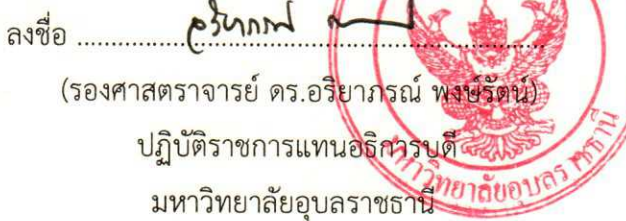 ลงชื่อ ........อริยาภรณ์........
(รองศาสตราจารย์ ดร.อริยาภรณ์ พงษ์รัตน์)
ปฏิบัติราชการแทนอธิการบดี
มหาวิทยาลัยอุบลราชธานี
มหาวิทยาลัยอุบลราชธานี